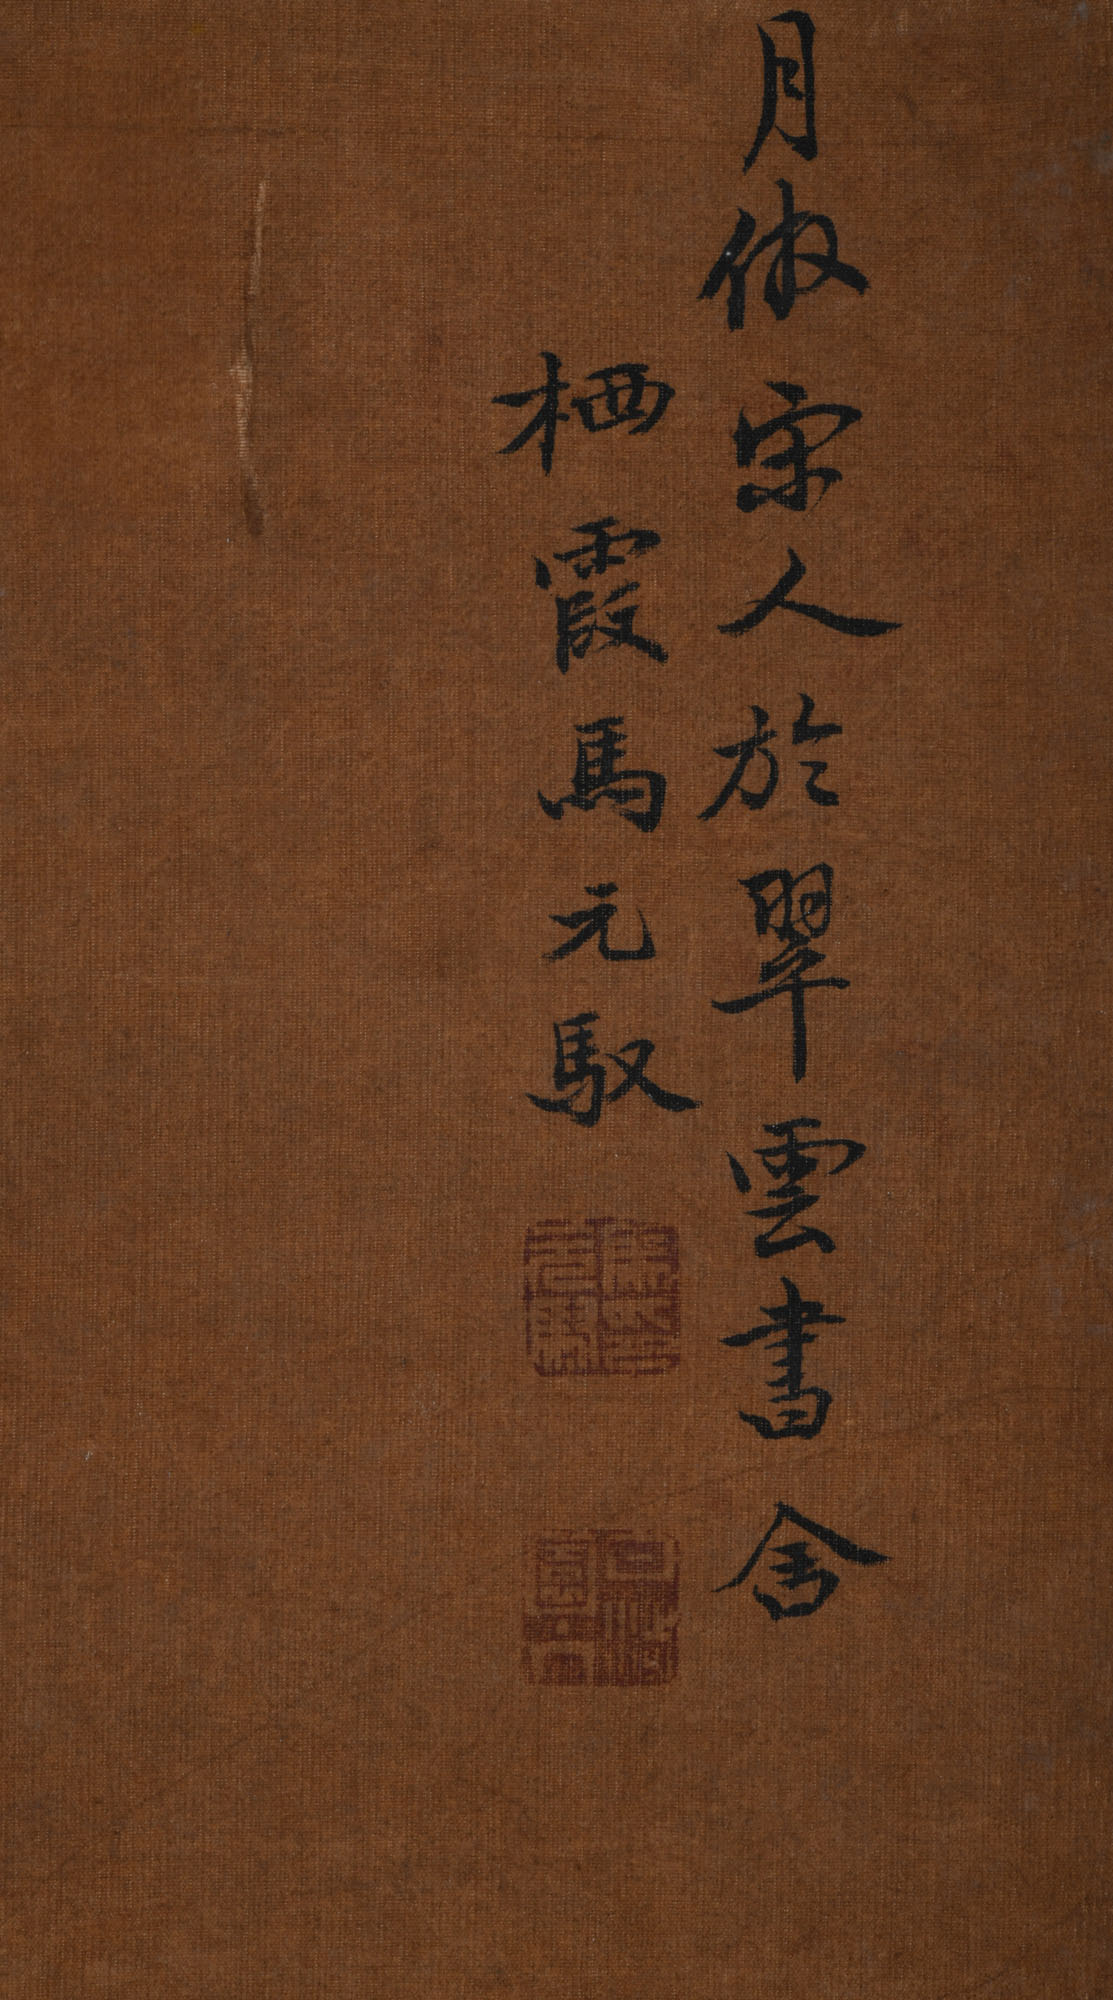 月倣宋人於翠雲書舍
栖霞馬元馭